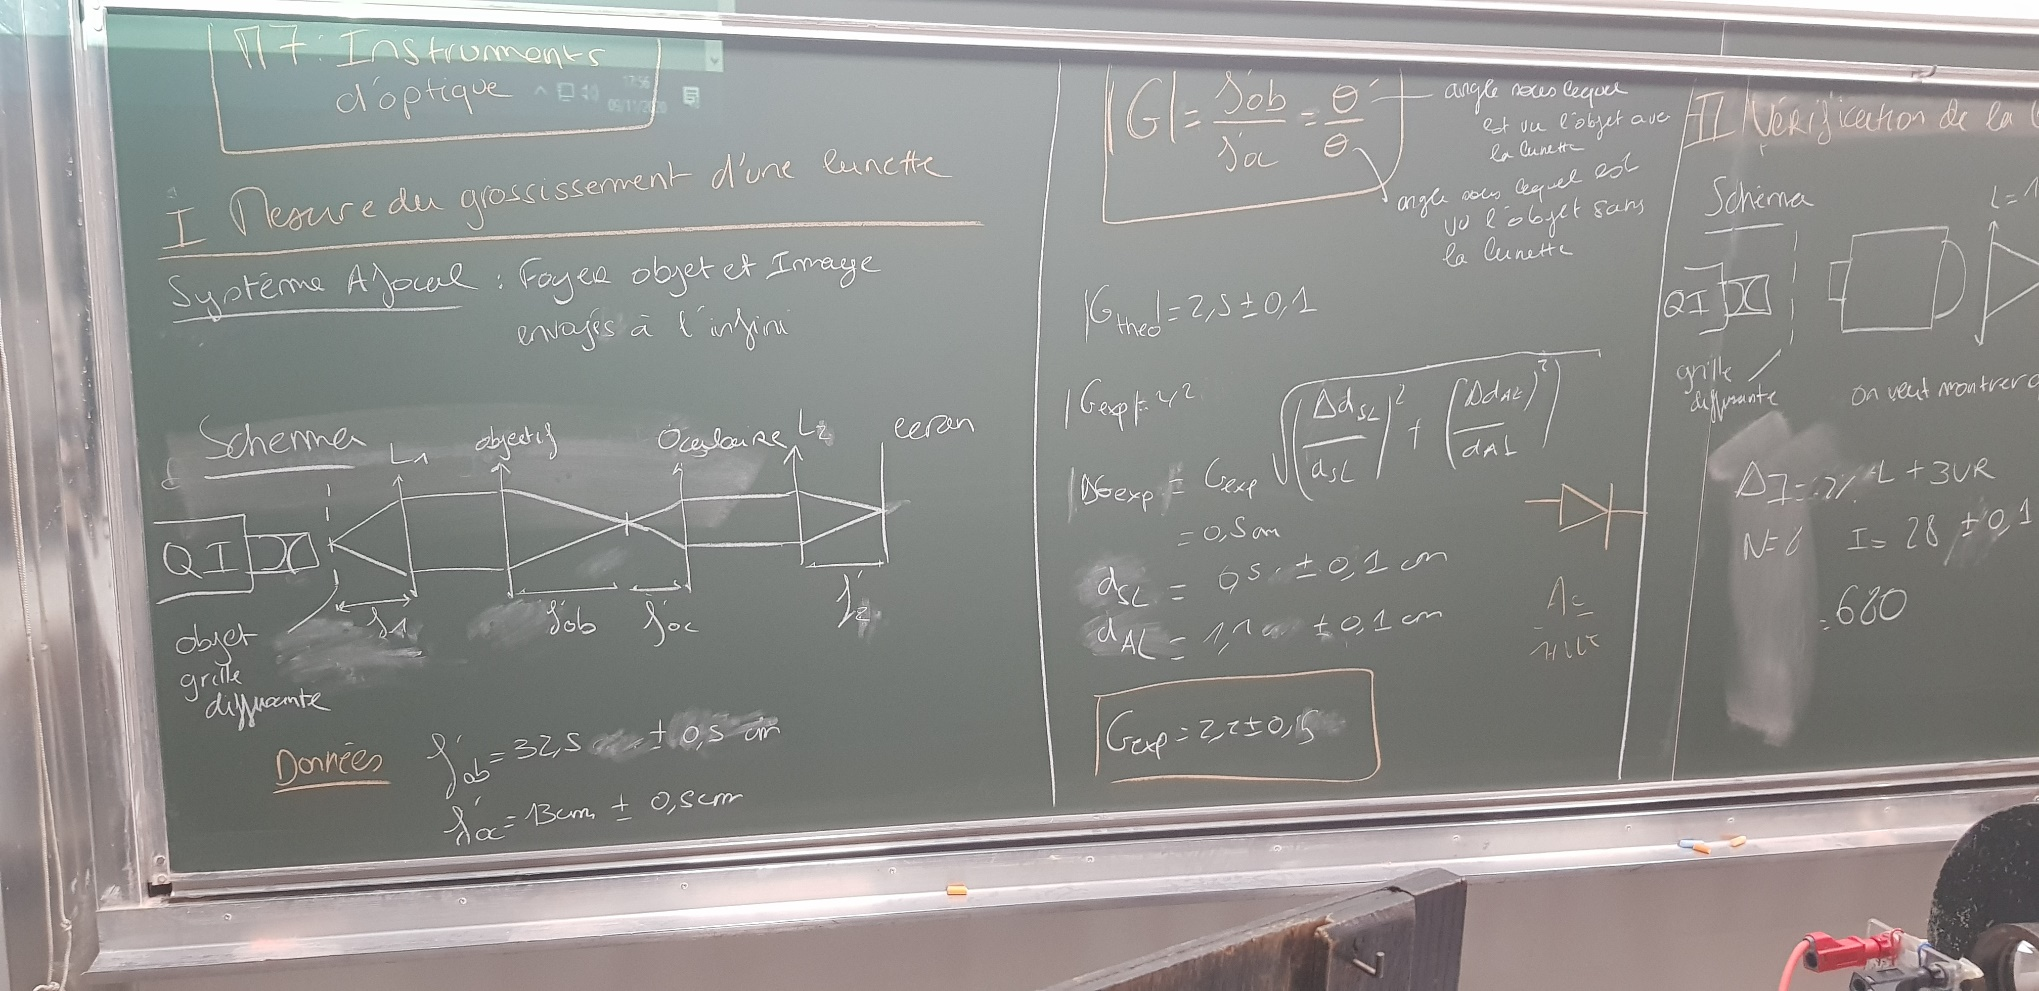 Π7: Instruments
d'optique
17:56
09/11/2020
I Mesure du grossissement d'une lunette
Système Afocal : Foyer objet et Image
envoyés à l'infini
Schéma
L1
objectif
Oculaire
L2
écran
QI
f'1
f'ob
f'oc
f'2
objet
grille
diffusante
Données
f'ob = 32,5 ± 0,5 cm
f'oc = 13cm ± 0,5cm
|G| = f'ob / f'oc = θ' / θ
angle sous lequel
est vu l'objet avec
la lunette
angle sous lequel est
vu l'objet sans
la lunette
|Gtheo| = 2,5 ± 0,1
|Gexp| = 2,2
|ΔGexp| = Gexp √((ΔdSL / dSL)² + (ΔdAL / dAL)²)
= 0,5 cm
dSL = 0,5 ± 0,1 cm
dAL = 1,1 ± 0,1 cm
Gexp = 2,2 ± 0,5
II Vérification de la
Schéma
L = 1
QI
grille
diffusante
on veut montrer
L + 3UR
I = 28 ± 0,1
680